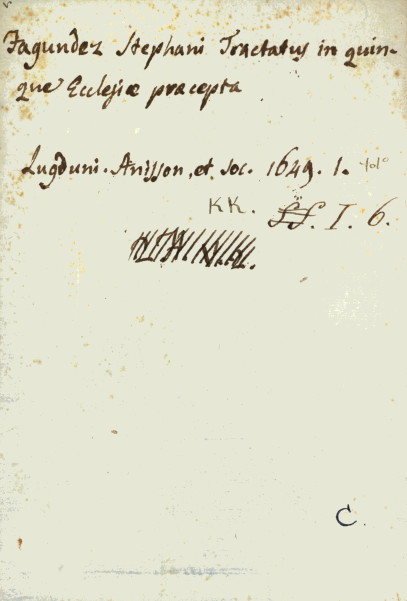 Fagundez Stephani Tractatus in quin-
que Ecclesiæ præcepta
Lugduni. Anisson, et soc. 1649. 1.
KK. I. 6.
C.